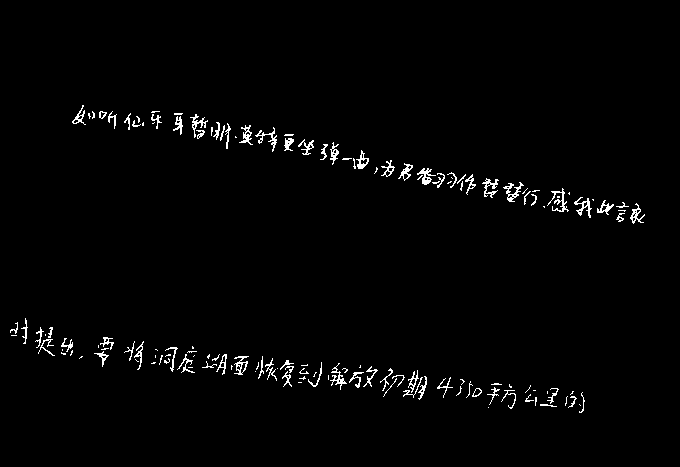 如听仙乐耳暂明.莫辞更坐弹一曲,为君翻作琵琶行.感我此言良
时提出,要将洞庭湖面恢复到解放初期4350平方公里的